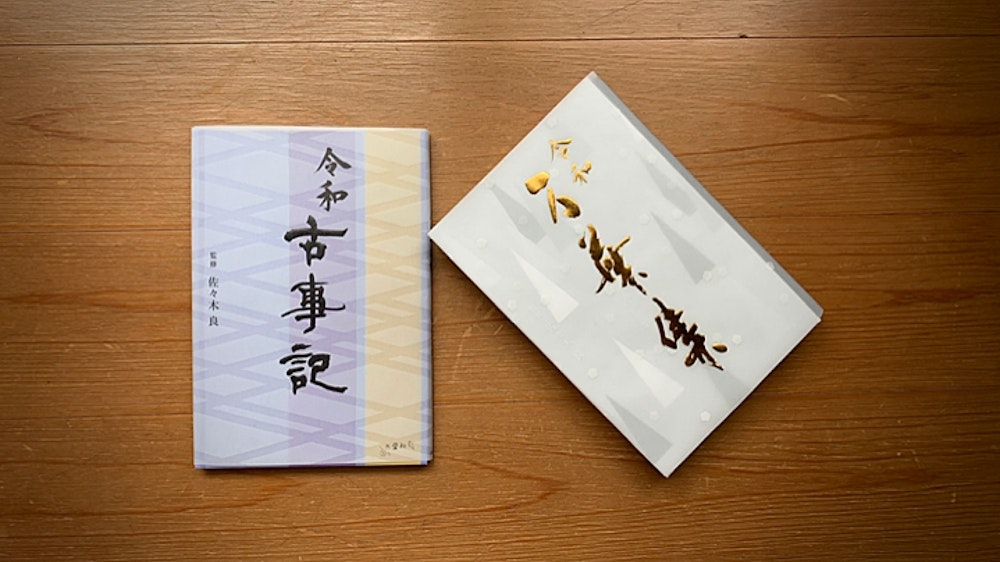 令和
古事記
監修 佐々木 良
令和
万葉集